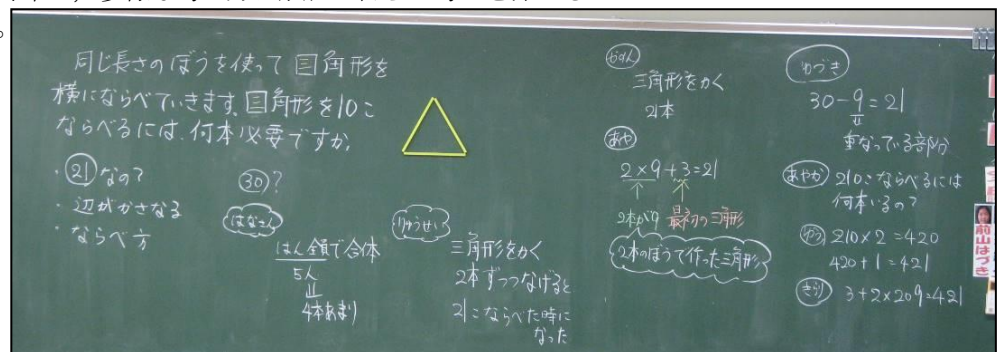 同じ長さのぼうを使って 三角形を
横にならべていきます。三角形を10こ
ならべるには、何本必要ですか。
・21なの?
・辺がかさなる
・ならべ方
30?
はなさん
はん全員で合体
5人
4本あまり
りゅうせい
三角形をかく
2本ずつつなげると
21こならべた時に
なった
三角形をかく
21本
あや
2×9+3=21
2本が9 最初の三角形
2本のぼうで作った三角形
ゆづき
30-9=21
重なっている部分
あやか 210こならべるには
何本いるの?
ゆう 210×2=420
420+1=421
きらり 3+2×209=421
前山はづき